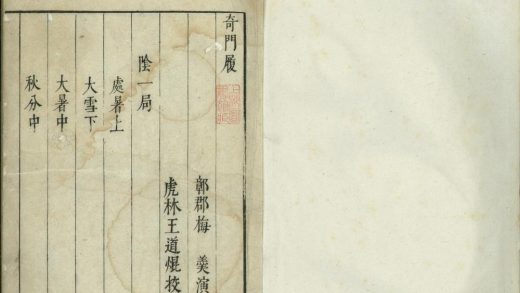 奇門履
鄣郡梅 羹演
虎林王道焜校
陰一局
處暑上
大雪下
大暑中
秋分中